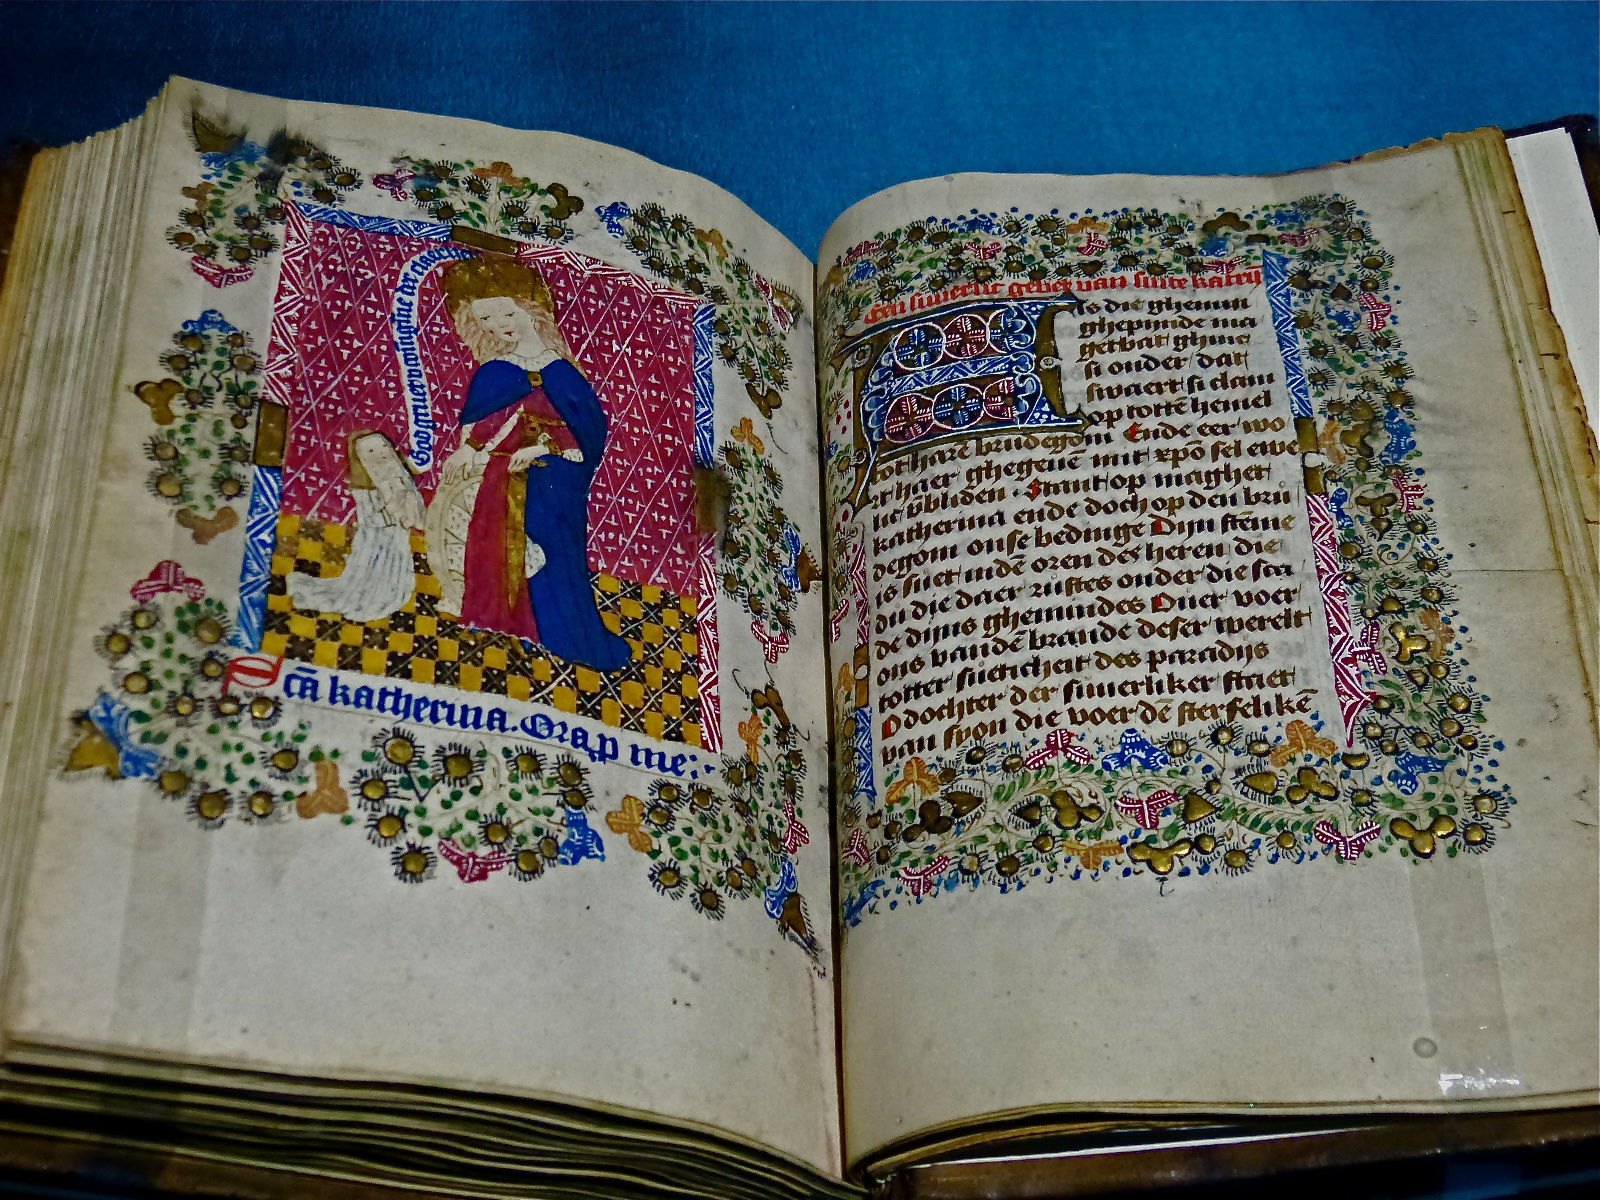 God gruet u wingaet der
Sca katherina. Ora p me:
Een suverlic gebet van sinte katrij
Als die ghemin
ghepinde ma
get bat ghinc
si onder dat
swaert si clam
op totte hemel
tot hare brudegom Ende eer wo
rt haer ghegeue mit xpo sel ewe
lic vbliden. Staut op magher
katherina ende doch op den bru
degom onse bedinge Dijn steme
is suet inde oren des heren die
du die daer rustes onder die sca
de dijns ghemindes Duer voer
ons vande brande deser werelt
totter sueticheit des paradijs
O dochter der suuerliker striet
van syon die voer de sterfelike